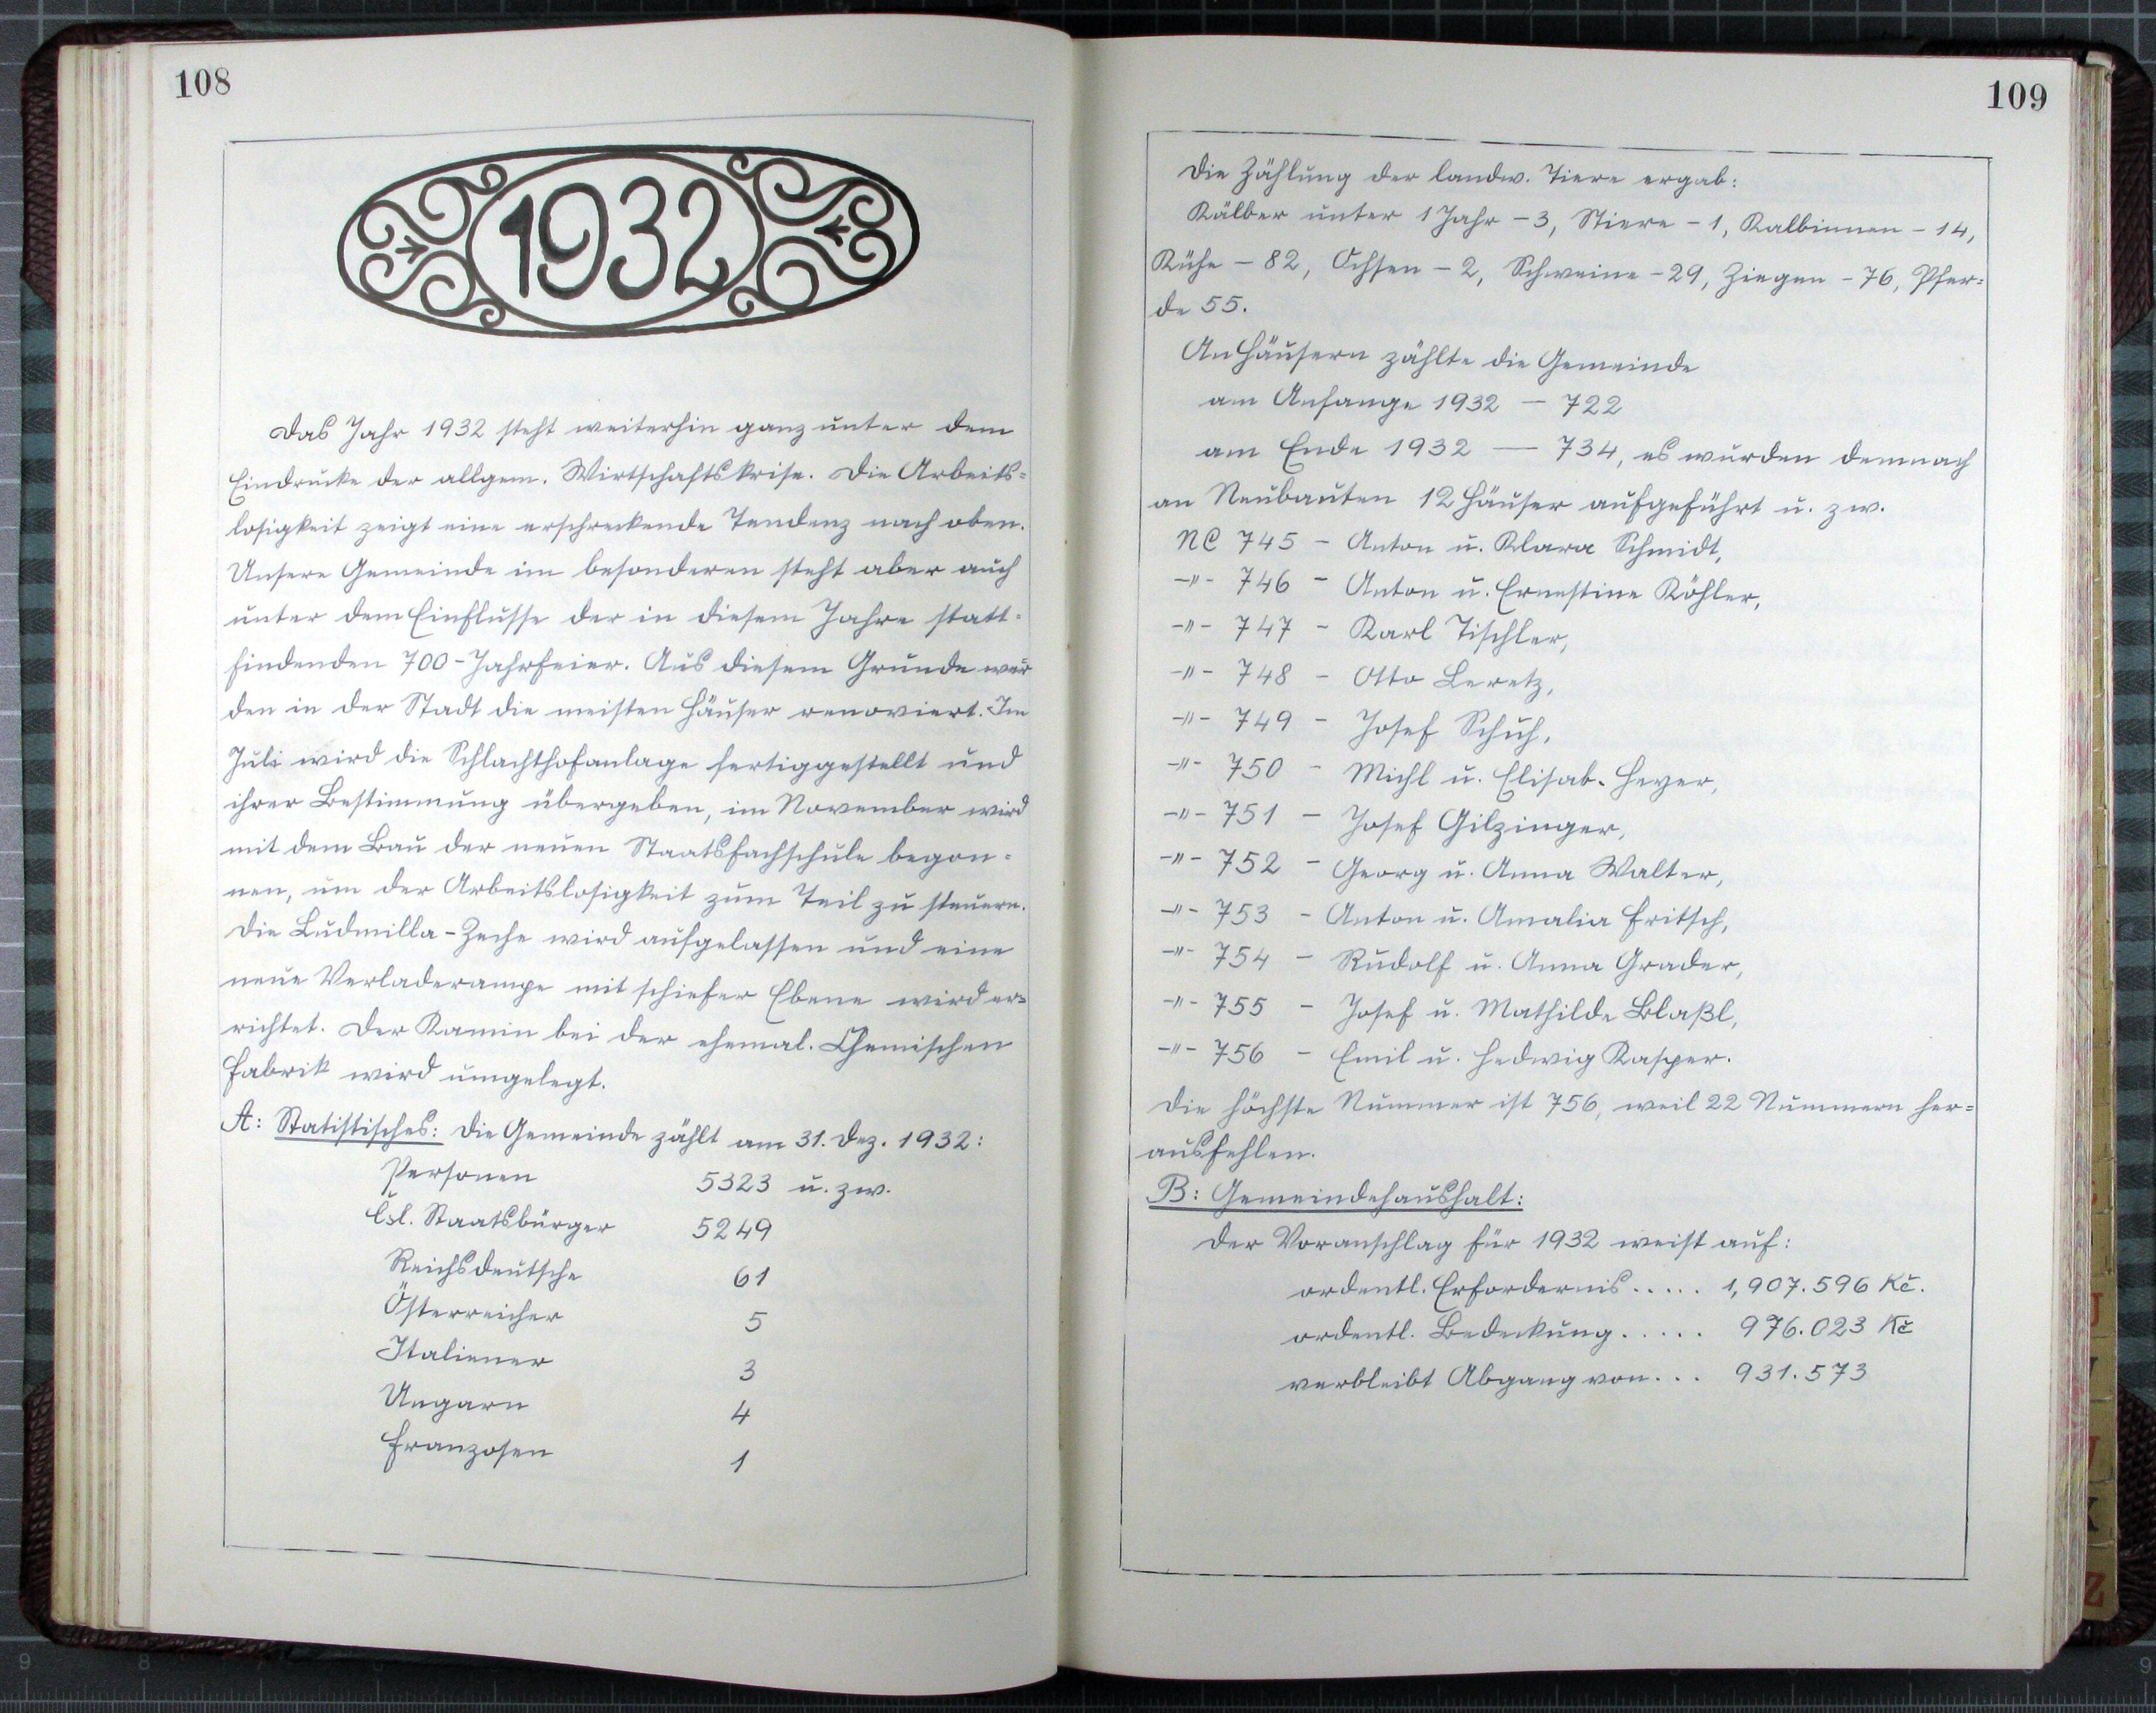 108
1932
Das Jahr 1932 steht weiterhin ganz unter dem
Eindrucke der allgem. Wirtschaftskrise. Die Arbeits=
losigkeit zeigt eine erschreckende Tendenz nach oben.
Unsere Gemeinde im besonderen steht aber auch
unter dem Einflusse der in diesem Jahre statt-
findenden 700-Jahrfeier. Aus diesem Grunde wur
den in der Stadt die meisten Häuser renoviert. Im
Juli wird die Schlachthofanlage fertiggestellt und
ihrer Bestimmung übergeben, im November wird
mit dem Bau der neuen Staatsfachschule begon=
nen, um der Arbeitslosigkeit zum Teil zu steuern.
Die Ludmilla-Zeche wird aufgelassen und eine
neue Verladerampe mit schiefer Ebene wird er=
richtet. Der Kamin bei der ehemal. Chemischen
Fabrik wird umgelegt.
A: Statistisches: Die Gemeinde zählt am 31. Dez. 1932:
Personen 5323 u. zw.
čsl. Staatsbürger 5249
Reichsdeutsche 61
Österreicher 5
Italiener 3
Ungarn 4
Franzosen 1
109
Die Zählung der landw. Tiere ergab:
Kälber unter 1 Jahr - 3, Stiere - 1, Kalbinnen - 14,
Kühe - 82, Ochsen - 2, Schweine - 29, Ziegen - 76, Pfer=
de 55.
An Häusern zählte die Gemeinde
am Anfange 1932 - 722
am Ende 1932 — 734, es wurden demnach
an Neubauten 12 Häuser aufgeführt u. zw.
NC 745 - Anton u. Klara Schmidt,
-"- 746 - Anton u. Ernestine Köhler,
-"- 747 - Karl Tischler,
-"- 748 - Otto Beretz,
-"- 749 - Josef Schuh,
-"- 750 - Michl u. Elisab. Heyer,
-"- 751 - Josef Gilzinger,
-"- 752 - Georg u. Anna Walter,
-"- 753 - Anton u. Amalia Fritsch,
-"- 754 - Rudolf u. Anna Grader,
-"- 755 - Josef u. Mathilde Blaßl,
-"- 756 - Emil u. Hedwig Kasper.
Die höchste Nummer ist 756, weil 22 Nummern her=
ausfehlen.
B: Gemeindehaushalt:
Der Voranschlag für 1932 weist auf:
ordentl. Erfordernis ..... 1,907.596 Kč.
ordentl. Bedeckung ..... 976.023 Kč
verbleibt Abgang von ... 931.573